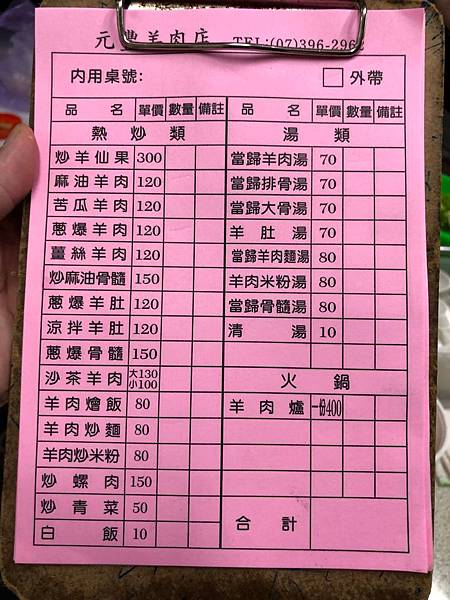 元豐羊肉店 TEL:(07)396-2962
內用桌號: 外帶
品名 單價 數量 備註
熱炒類
炒羊仙果 300
麻油羊肉 120
苦瓜羊肉 120
蔥爆羊肉 120
薑絲羊肉 120
炒麻油骨髓 150
蔥爆羊肚 120
涼拌羊肚 120
蔥爆骨髓 150
沙茶羊肉 大130 小100
羊肉燴飯 80
羊肉炒麵 80
羊肉炒米粉 80
炒螺肉 150
炒青菜 50
白飯 10
品名 單價 數量 備註
湯類
當歸羊肉湯 70
當歸排骨湯 70
當歸大骨湯 70
羊肚湯 70
當歸羊肉麵湯 80
羊肉米粉湯 80
當歸骨髓湯 80
清湯 10
火鍋
羊肉爐 一份400
合計